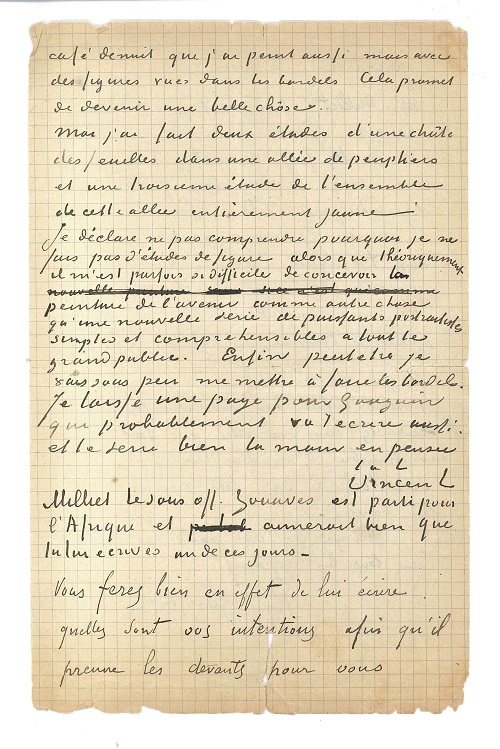 café de nuit que j'ai peint aussi mais avec
des figures vues dans les bordels Cela promet
de devenir une belle chôse.
moi j'ai fait deux études d'une chûte
des feuilles dans une allée de peupliers
et une troisieme étude de l'ensemble
de cette allée entièrement jaune
Je déclare ne pas comprendre pourquoi je ne
fais pas d'études de figure alors que théoriquement
il m'est parfois si difficile de concevoir la
peinture de l'avenir comme autre chose
qu'une nouvelle serie de puissants portraitistes
simples et comprehensibles a tout le
grand public. Enfin peutetre je
vais sous peu me mettre à faire les bordels.
Je laisse une page pour Gauguin
qui probablement va t'ecrire aussi.
et te serre bien la main en pensée
t. à t.
Vincent
Milliet le sous off. Zouaves est parti pour
l'Afrique et aimerait bien que
tu lui ecrives un de ces jours –
Vous ferez bien en effet de lui écrire
quelles sont vos intentions afin qu'il
prenne les devants pour vous